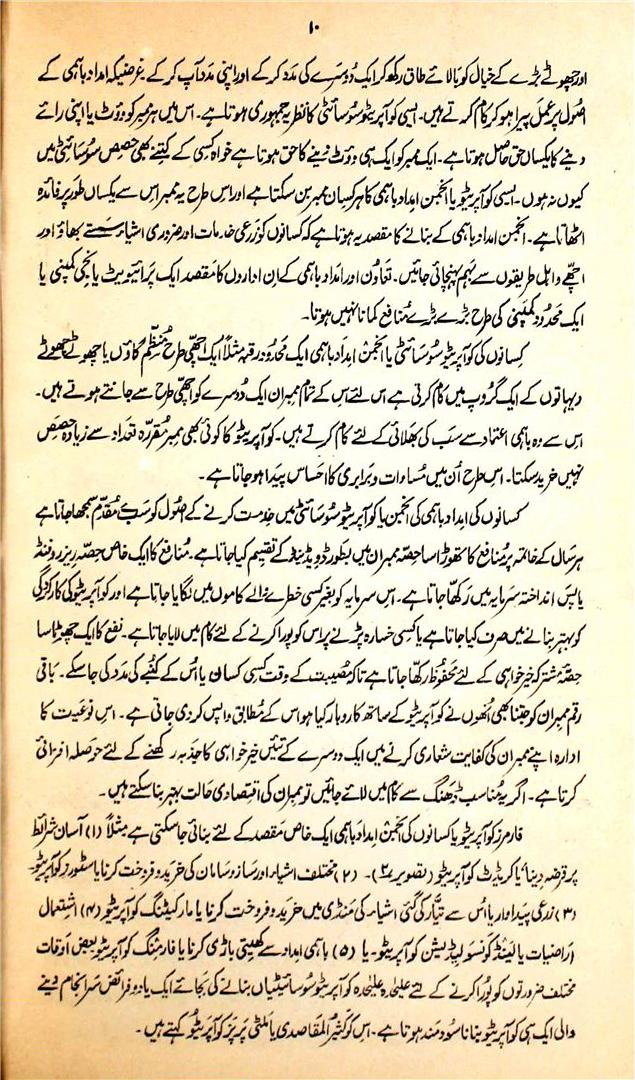 ۱۰
اور چھوٹے بڑے کے خیال کو بالائے طاق رکھ کر ایک دُوسرے کی مدد کر کے اور اپنی مدد آپ کر کے غرضیکہ امداد باہمی کے
اصُول پر عمل پیرا ہو کر کام کرتے ہیں۔ ایسی کوآپریٹو سوسائٹی کا نظریہ جمہوری ہوتا ہے۔ اس میں ہر ممبر کو ووٹ یا اپنی رائے
دینے کا یکساں حق حاصل ہوتا ہے۔ ایک ممبر کو ایک ہی ووٹ دینے کا حق ہوتا ہے خواہ کسی کے کتنے بھی حصص سوسائٹی میں
کیوں نہ ہوں۔ ایسی کوآپریٹو یا انجمن اِمداد باہمی کا ہر کسان ممبر بن سکتا ہے اور اس طرح یہ ممبر اس سے یکساں طور پر فائدہ
اٹھاتا ہے۔ انجمن امداد باہمی کے بنانے کا مقصد یہ ہوتا ہے کہ کسانوں کو زرعی خدمات اور ضروری اشیاء سستے بھاؤ اور
اچھے و اہل طریقوں سے بہم پہنچائی جائیں۔ تعاون اور امداد باہمی کے اِن اداروں کا مقصد ایک پرائیویٹ یا نجی کمپنی یا
ایک محدود کمپنی کی طرح بڑے بڑے منافع کمانا نہیں ہوتا۔
کِسانوں کی کوآپریٹو سوسائٹی یا انجمن اِمداد باہمی ایک محدود رقبہ مثلاً ایک اچھی طرح مُنظّم گاؤں یا چھوٹے چھوٹے
دیہاتوں کے ایک گروپ میں کام کرتی ہے اس لئے اس کے تمام ممبران ایک دُوسرے کو اچھی طرح سے جانتے ہوتے ہیں۔
اس سے وہ باہمی اعتماد سے سب کی بھلائی کے لئے کام کرتے ہیں۔ کوآپریٹو کا کوئی بھی ممبر مقررہ تعداد سے زیادہ حِصص
نہیں خرید سکتا۔ اس طرح اُن میں مُساوات و برابری کا احساس پیدا ہو جاتا ہے۔
کسانوں کی امداد باہمی کی انجمن یا کوآپریٹو سوسائٹی میں خدمت کرنے کے اصُول کو سب سے مُقدّم سمجھا جاتا ہے
ہر سال کے خاتمہ پر مُنافع کا تھوڑا سا حصّہ ممبران میں بطور ڈویڈینڈ کے تقسیم کیا جاتا ہے۔ مُنافع کا ایک خاص حصّہ ریزرو فنڈ
یا پس انداختہ سرمایہ میں رکھا جاتا ہے۔ اس سرمایہ کو بغیر کسی خطرے والے کاموں میں لگایا جاتا ہے اور کوآپریٹو کی کارکردگی
کو بہتر بنانے میں صرف کیا جاتا ہے یا کسی خسارہ پڑنے پر اس کو پورا کرنے کے لئے کام میں لایا جاتا ہے۔ نفع کا ایک چھوٹا سا
حِصّہ مشترکہ خیر خواہی کے لئے محفوظ رکھا جاتا ہے تاکہ مُصیبت کے وقت کِسی کسان یا اُس کے کُنبے کی مدد کی جا سکے۔ باقی
رقم ممبران کو جتنا بھی اُنھوں نے کوآپریٹو کے ساتھ کاروبار کیا ہو اس کے مُطابق واپس کر دی جاتی ہے۔ اس نوعیت کا
ادارہ اپنے ممبران کی کفایت شعاری کرنے میں ایک دوسرے کے تئیں خیر خواہی کا جذبہ رکھنے کے لئے حوصلہ افزائی
کرتا ہے۔ اگر یہ مُناسب ڈھنگ سے کام میں لائے جائیں تو ممبران کی اقتصادی حالت بہتر بنا سکتے ہیں۔
فارمرز کوآپریٹو یا کسانوں کی انجمن اِمداد باہمی ایک خاص مقصد کے لئے بنائی جا سکتی ہے مثلاً (۱) آسان شرائط
پر قرضہ دینا یا کریڈٹ کوآپریٹو (تصویر ۲)۔ (۲) مختلف اشیاء اور ساز و سامان کی خرید و فروخت کرنا یا سٹورز کوآپریٹو۔
(۳) زرعی پیداوار یا اُس سے تیّار کی گئی اشیاء کی منڈی میں خرید و فروخت کرنا یا مارکیٹنگ کوآپریٹو (۴) اشتمال
اراضیات یا لینڈ کونسولیڈیشن کوآپریٹو۔ یا (۵) باہمی امداد سے کھیتی باڑی کرنا یا فارمنگ کوآپریٹو بعض اوقات
مختلف ضرورتوں کو پُورا کرنے کے لئے علیٰحدہ علیٰحدہ کوآپریٹو سوسائیٹیاں بنانے کی بجائے ایک یا دو فرائض سر انجام دینے
والی ایک ہی کوآپریٹو بنانا سود مند ہوتا ہے۔ اس کو کثیر المقاصدی یا ملٹی پرپز کوآپریٹو کہتے ہیں۔